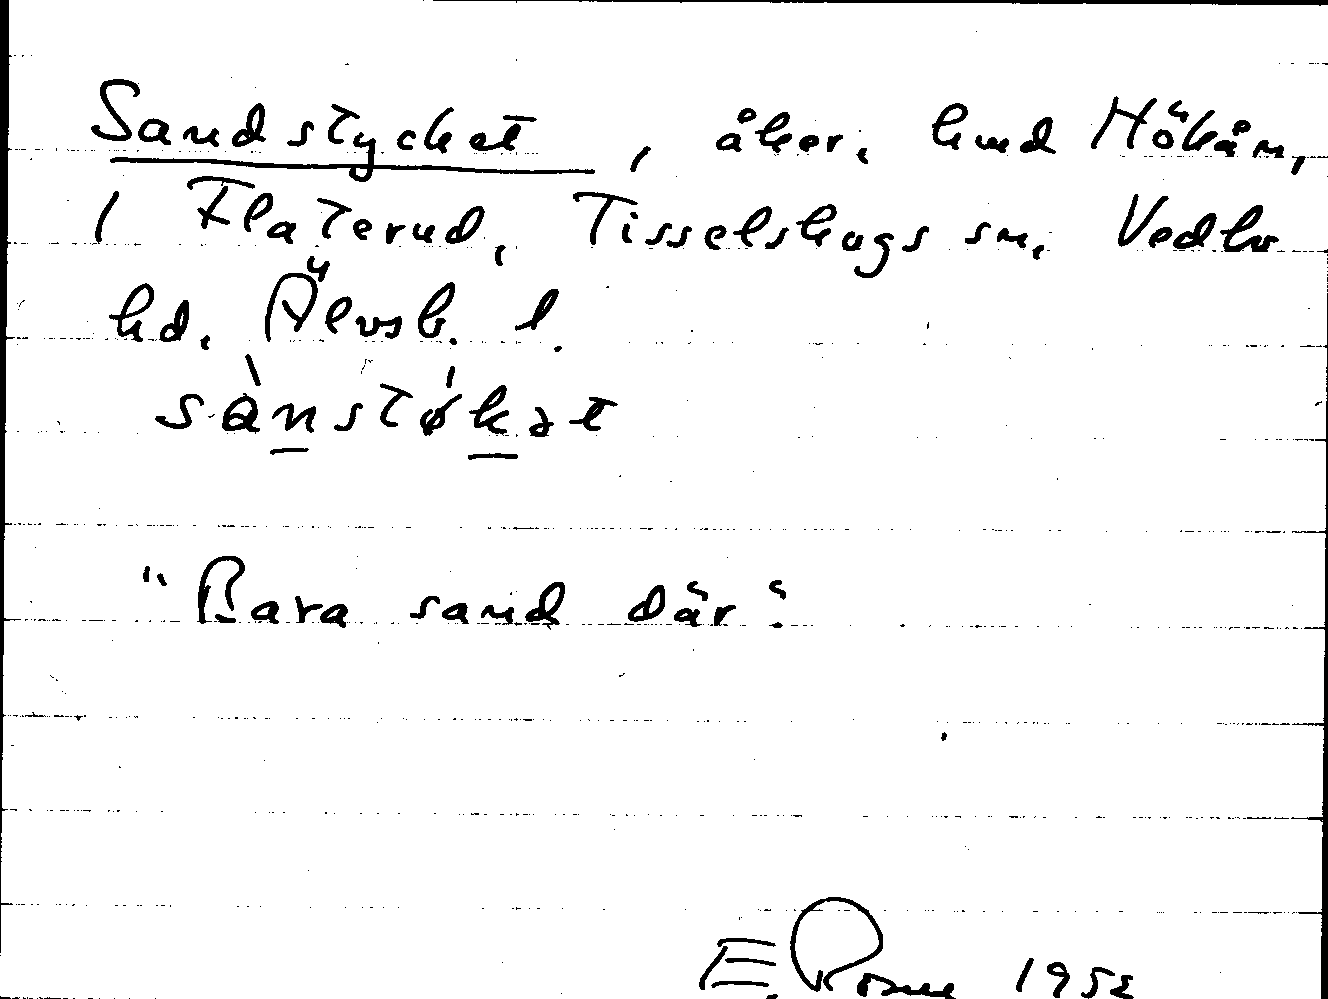 Sandstycket, åker, hmd Hökån,
1 Flaterud, Tisselskogs sn, Vedbo
hd. Älvsb. l.
sànstǿkət
"Bara sand där".
E. 1952